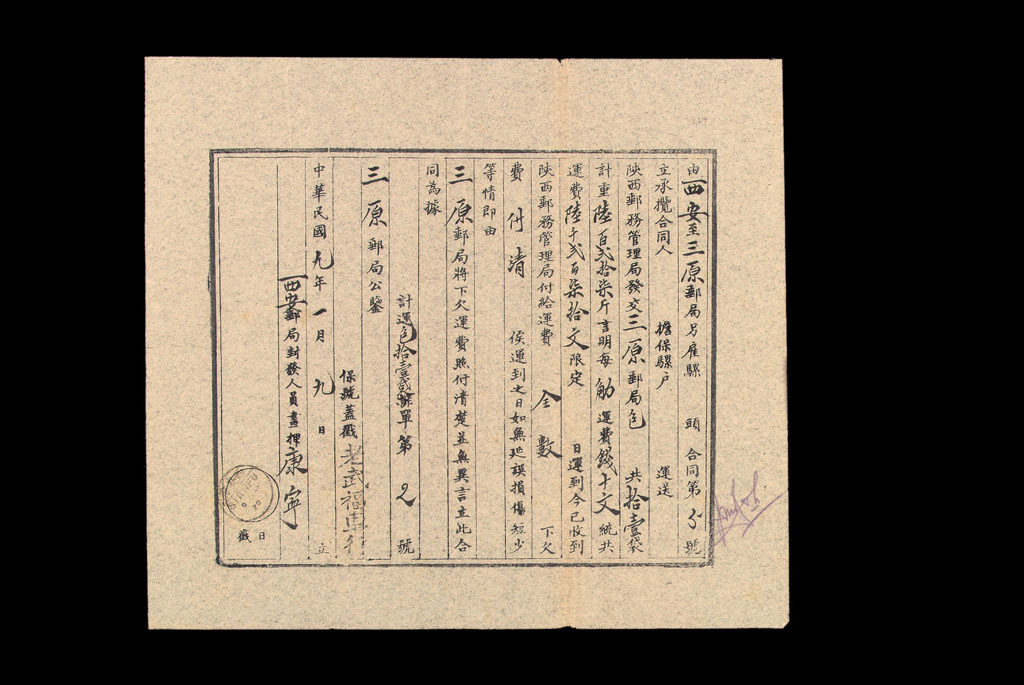 由西安至三原郵局另雇騾 頭 合同第 號
立承攬合同人 擔保騾戶 運送
陝西郵務管理局發交三原郵局包 共拾壹袋
計重陸百弍拾柒斤言明每觔運費錢十文統共
運費陸千弍百柒拾文限定 日運到今已收到
陝西郵務管理局付給運費 全數 下欠
費 付清 俟運到之日如無延誤損傷短少
等情即由
三原郵局將下欠運費照付清楚並無異言立此合
同為據
計運包拾壹 單第 2 號
三原郵局公鑒
保號蓋戳 老武福車行
中華民國九年一月九日 立
西安郵局封發人員畫押康寧
日戳